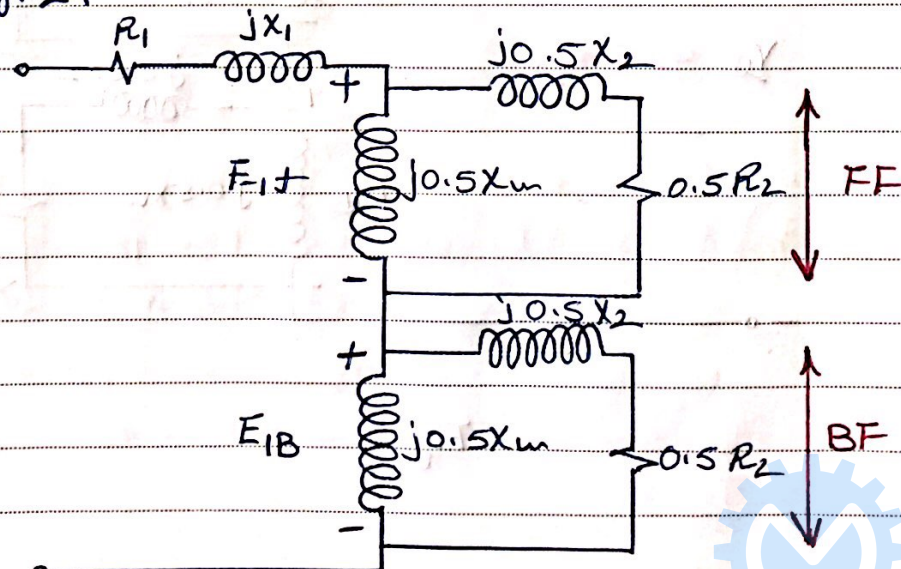 R1 jX1 j0.5X2
+
E1f j0.5Xm 0.5R2 FF
-
j0.5X2
+
E1B j0.5Xm 0.5R2 BF
-